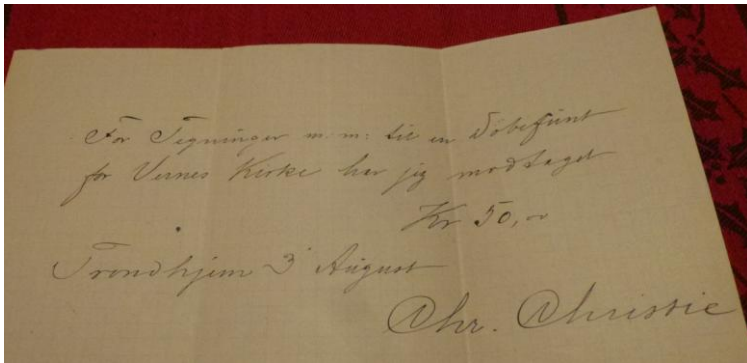 For Tegninger m: m: til en Döbefunt
for Vernes Kirke har jeg modtaget
Kr 50,00
Trondhjem 3 August
Chr. Christie